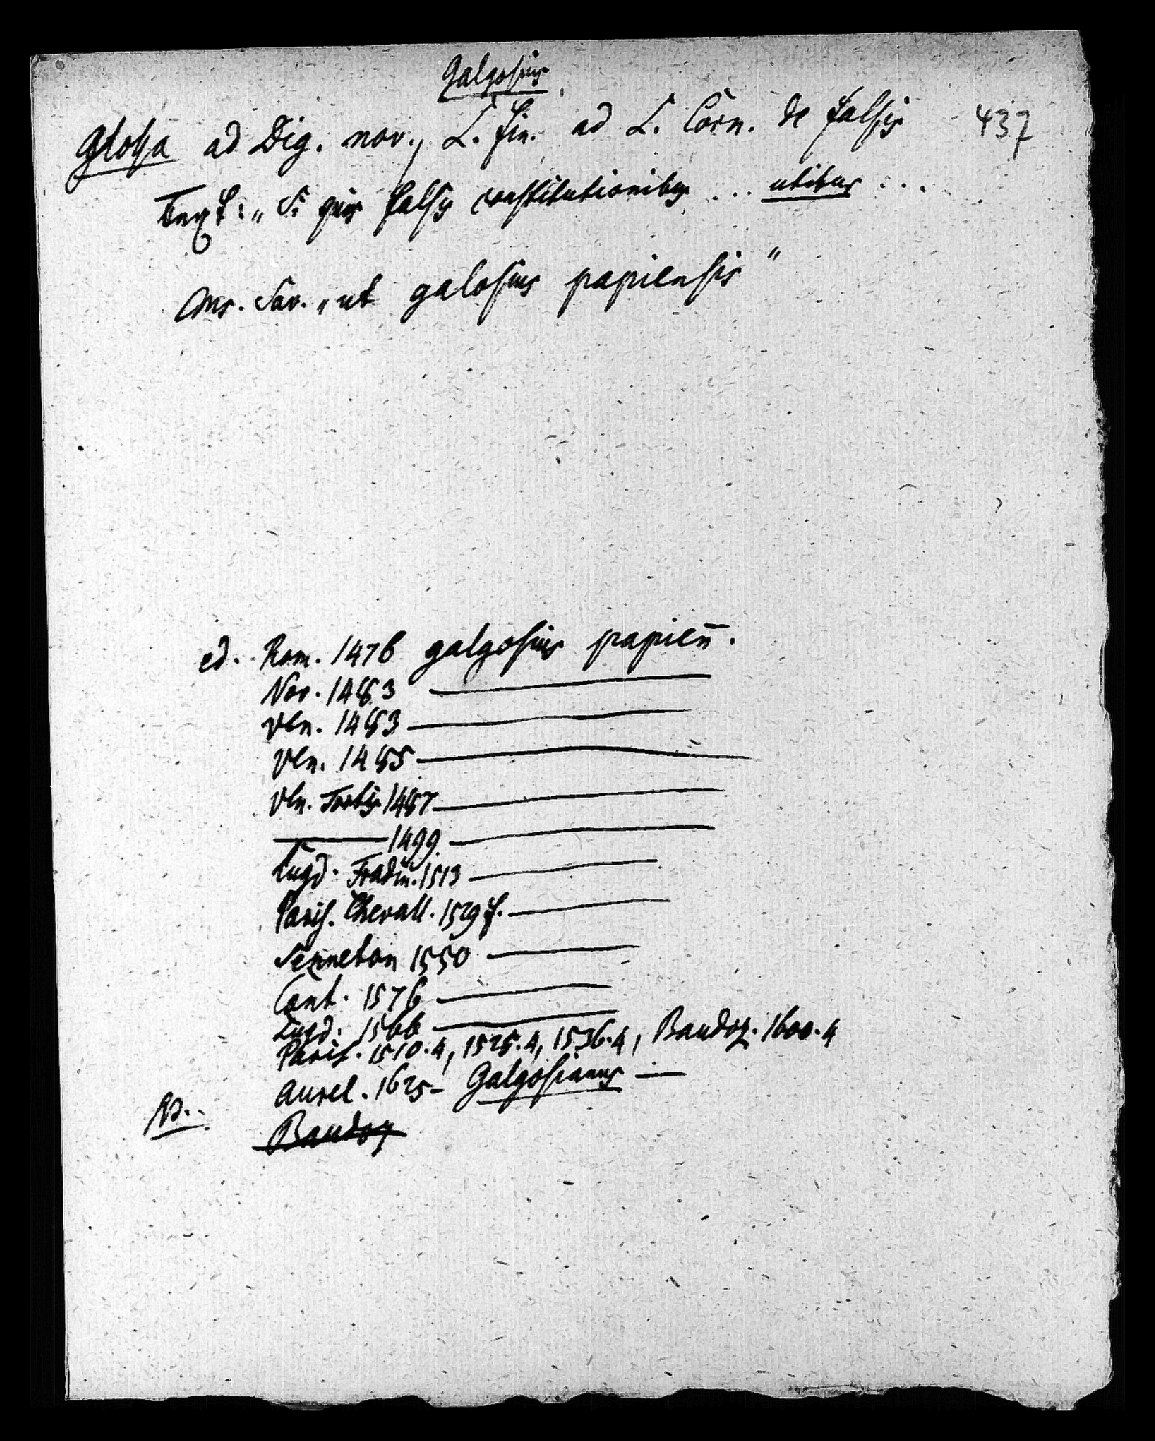 Galgosius
Glossa ad Dig. nov., L. fin. ad L. Corn. de falsis 437
Text: „Si quis falsis constitutionibus ... utitur ...
Ms. Sav. „ut galosius papiensis"
ed. Rom. 1476 galgosius papien̄.
Nor. 1483 ———
Ven. 1483 ———
Ven. 1485 ———
Ven. Tortis 1487 ———
——— 1499 ———
Lugd. Fradin. 1513 ———
Paris. Chevall. 1529 f. ———
Senneton 1550 ———
Cont. 1576 ———
Lugd. 1566 ———
Paris. 1510.4, 1525.4, 1536.4, Baudoz. 1600.4
Aurel. 1625 – Galgosianus —
NB.
Baudoz